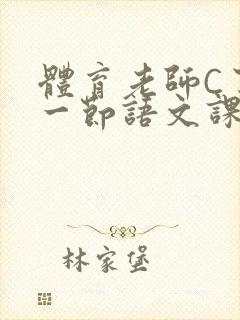 體育老師C
一節語文課
林家堡